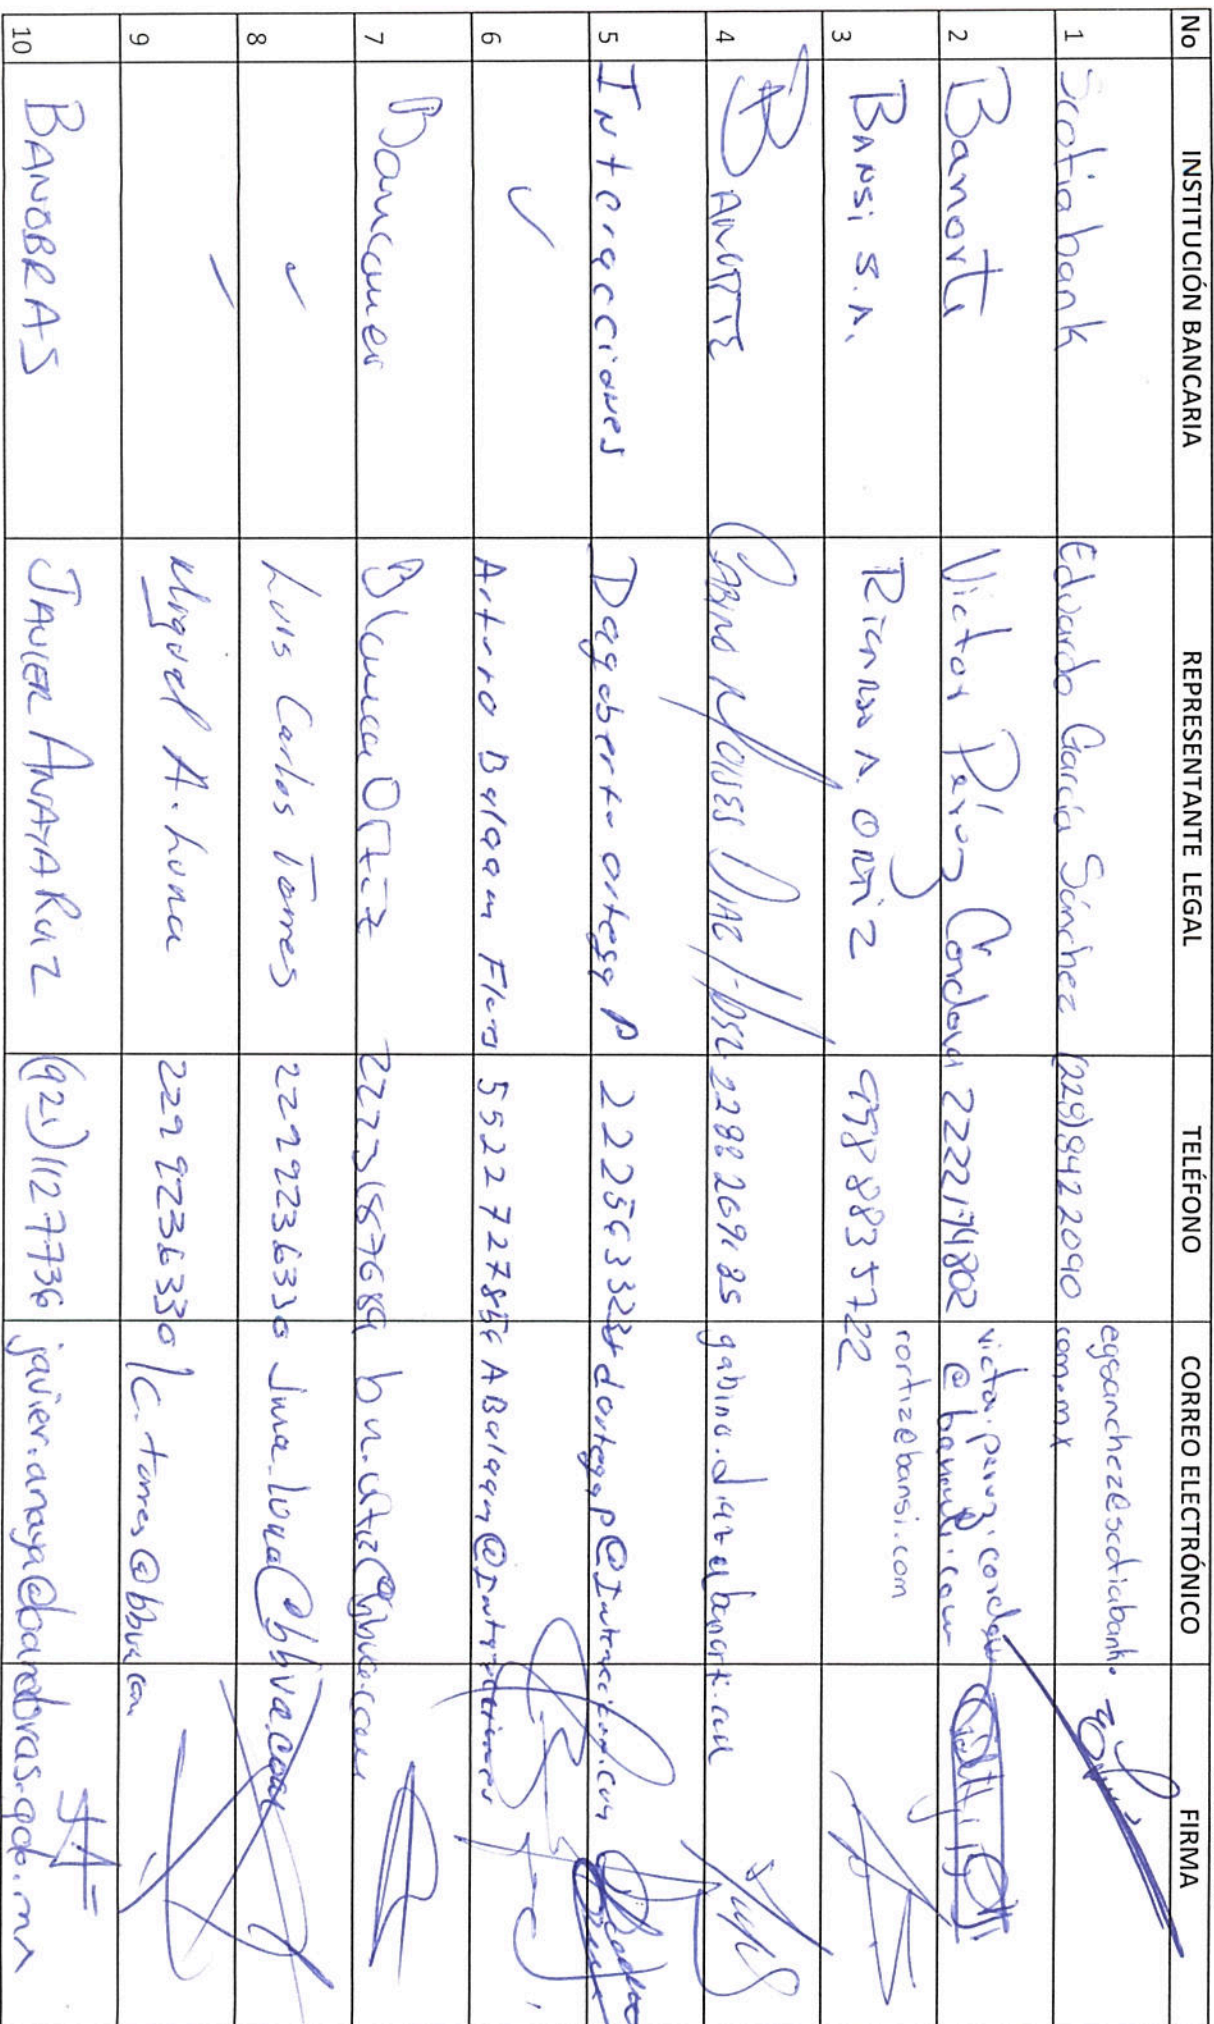 No INSTITUCIÓN BANCARIA REPRESENTANTE LEGAL TELÉFONO CORREO ELECTRÓNICO FIRMA
1 Scotiabank Eduardo García Sánchez (229)8422090 egsanchez@scotiabank.
com.mx
2 Banorte Victor Pérez Cordova 2222174802 victor.perez.cordova
@banorte.com
3 BANSI S.A. RICARDO A. ORTIZ 9988835722 rortiz@bansi.com
4 BANORTE GABINO MOISES DIAZ 2288269125
5 Interacciones Dagoberto Ortega P dortegap@Interacciones.com
6 ✓ Arturo Balaam Flores ABalaam@Interacciones
7 Bancomer Blanca Ortiz
8 ✓ Luis Carlos Torres 2299236330
9 ✓ Miguel A. Luna 2299236330 lc.torres@bbva.com
10 BANOBRAS JAVIER ANAYA RUIZ (921)1127736 javier.anaya@banobras.gob.mx